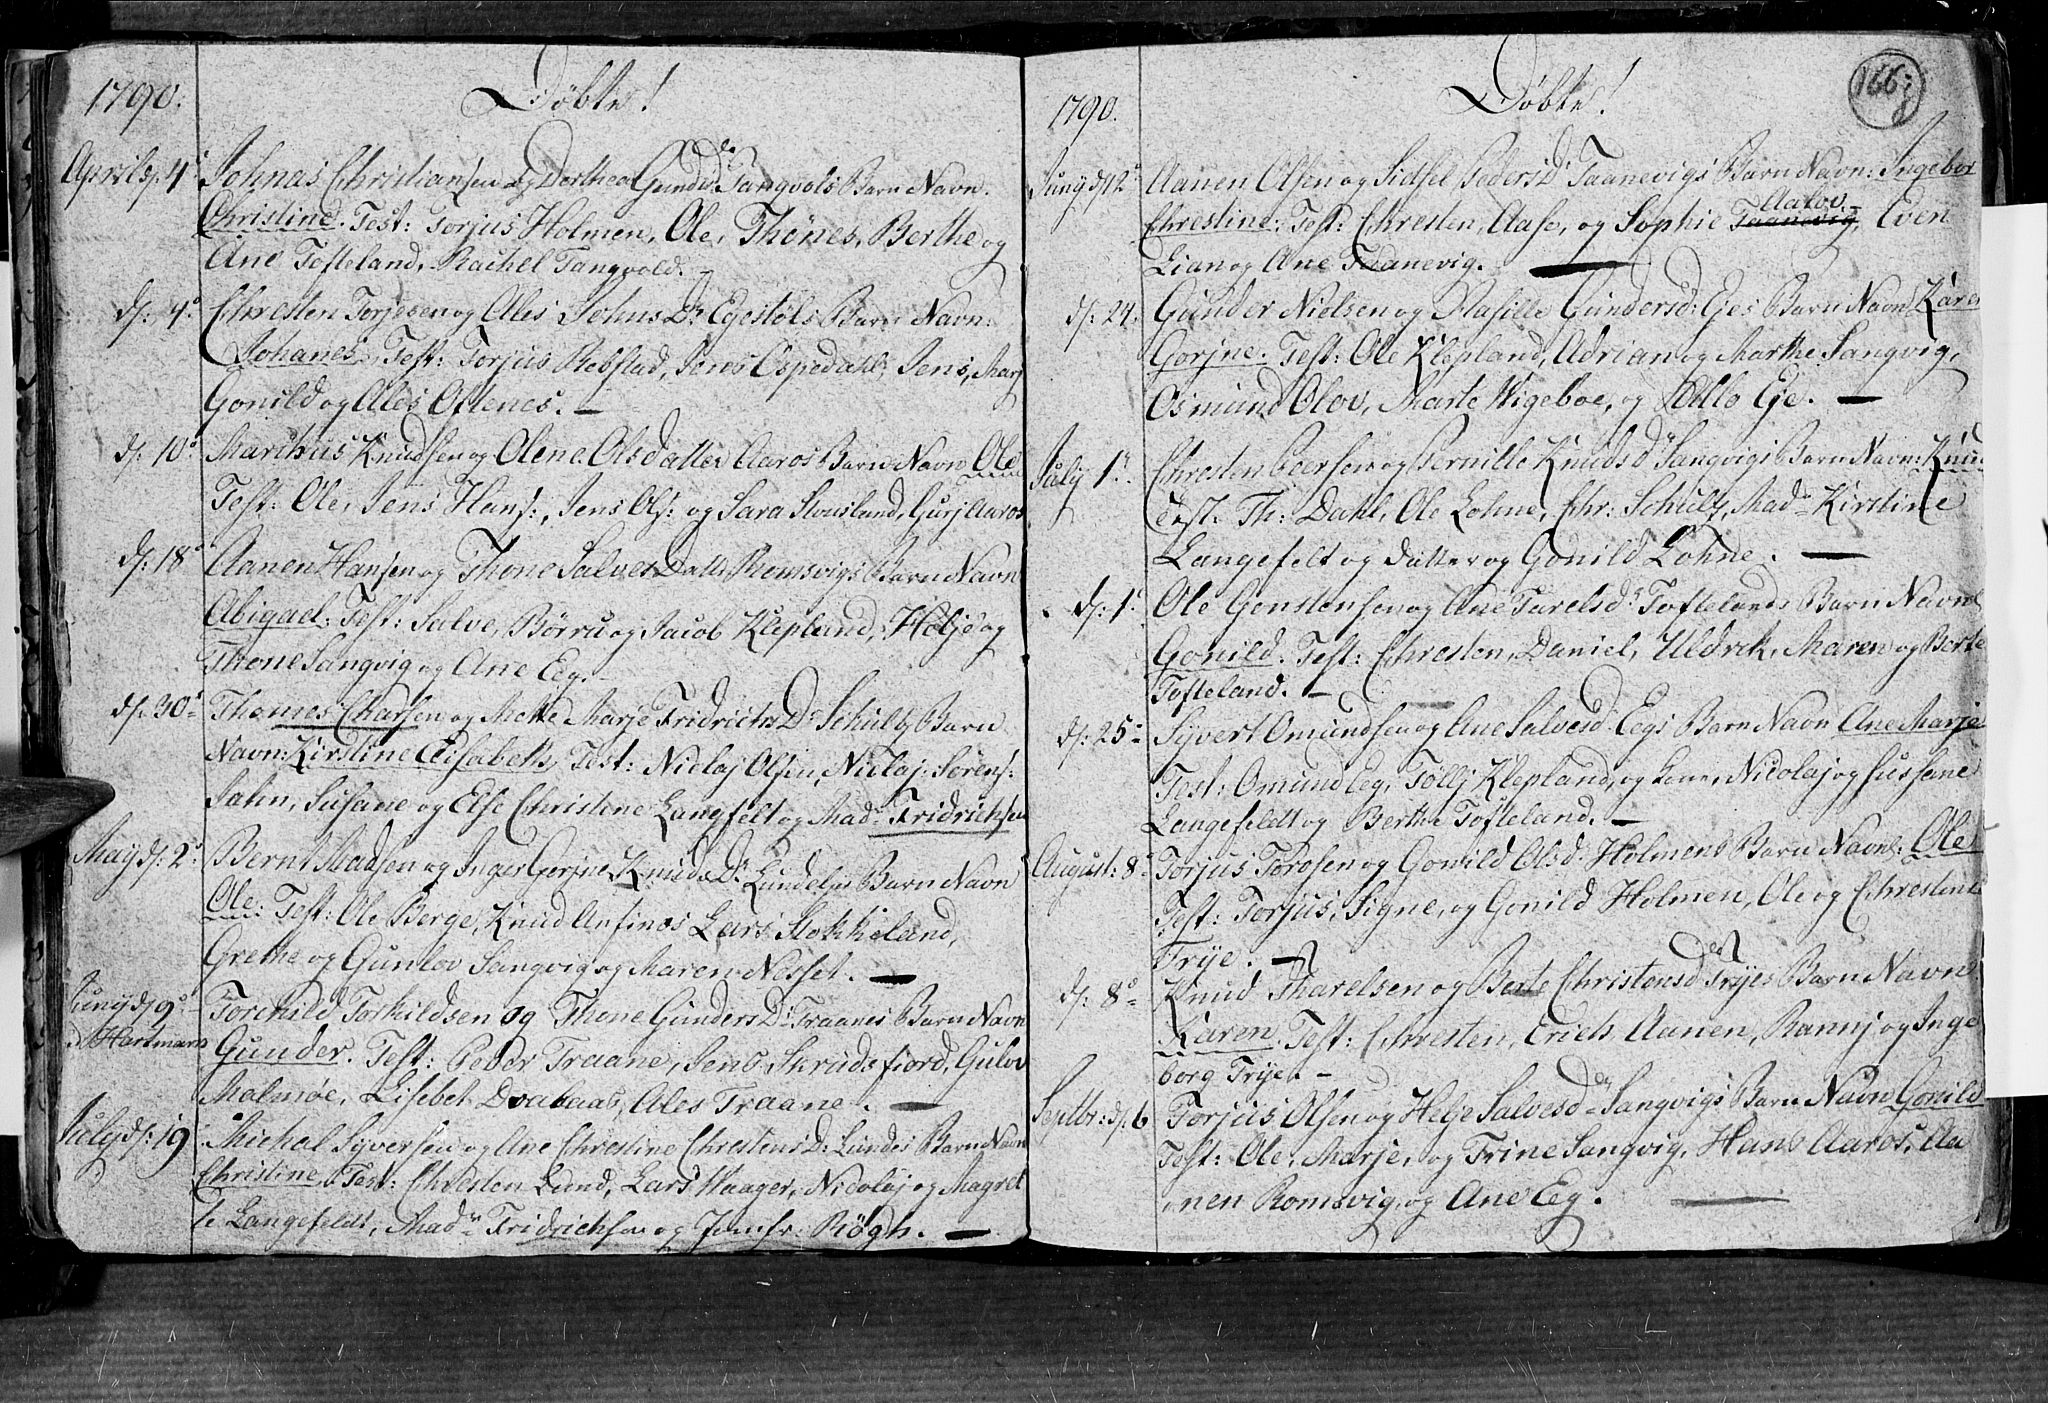 1790.
Døbte!
April d. 4de Johnas Christiansen og Dorthea Gunders Dr Tangvols Barn Navn:
Christine. Test: Torjus Holmen, Ole, Thønes, Berthe og
Ane Tofteland, Rachel Tangvold. –
d: 4de Chresten Torjesen og Ales Johns Dr Egestøls Barn Navn:
Johanes. Test: Torjus Rebstad, Jens Ospedahl, Jens, Marj
Gonild og Ales Oftenes. –
d: 10de Marthus Knudsen og Olene Olsdatter Aaros Barn Navn Ole
Test: Ole, Jens Hans:, Jens Ols: og Sara Stousland, Gurj Aaros
d: 18de Aanen Hansen og Thone Salves Datt: Romsvigs Barn Navn
Abigael. Test: Salve, Børru og Jacob Klepland, Helje og
Thone Sangvig og Ane Eeg. –
d: 30te Thomes Charsen og Mette Marje Fridrichs Dr Schultz Barn
Navn: Kirstine Elisabeth, Test: Niclaj Olsen, Niclaj Sørens:
Sahn, Susane og Else Christine Langfelt og Mad: Fridrichsen
Maj d: 2de Bernt Madsen og Inger Gorjne Knuds Dr Lundeljes Barn Navn
Ole: Test: Ole Berge, Knud Anfinøs Lars Stokkeland,
Grethe og Gunlov Sangvig og Maren Nesset. –
Junij d 9de Torchild Torkildsen og Thone Gunders Dr Traanes Barn Navn
Hartmarn Gunder. Test: Peder Traane, Jens Skrudsfiord, Gulov
Malmøe, Lisebet Drabaas, Ales Traane. –
July d: 19 Michal Syversen og Ane Chrestine Chrestens D: Lundes Barn Navn
Christine, Test: Chresten Lund, Lars Haager, Nicolaj og Magret
te Langefeldt, Madme Fridrichsen og Jomfr: Røgh. –
166
1790.
Døbte!
Junij d 12te Aanen Olsen og Sidsel Pedersd Taanevigs Barn Navn: Ingebor
Chrestine: Test: Chresten, Aase, og Sophie Taanevig, Aalov Even
Lian og Ane Taanevig. –
d: 24. Gunder Nielsen og Masille Gundersd: Ejes Barn Navn Karen
Gorjne. Test: Ole Klepland, Adrian og Marthe Sangvig,
Osmund Olov, Marte Wigeboe, og Adlo Eje. –
July 1te Chresten Peersen og Pernille Knudsdr Sangvigs Barn Navn: Knu:
Test. Th: Dahl, Ole Lohne, Chr: Schultz, Madme Kirstine
Langefelt og datter og Gonild Lohne. –
d: 1te Ole Gonstensen og Ane Tarelsdr Toftelands Barn Navn:
Gonild. Test: Chresten, Daniel, Uldrek, Maren og Berte
Tofteland. –
d: 25te Syvert Omundsen og Ane Salvesd: Eegs Barn Navn Ane Marje
Test: Omund Eeg, Tøllj Klepland, og Lene, Nicolaj og Sussane
Langefeldt og Berthe Tofteland. –
August: 8de Torjus Torosen og Gonild Olsd: Holmens Barn Navn: Ole
Test: Torjus, Signe, og Gonild Holmen, Ole og Chrestine
Trye. –
d: 8de Knud Tharelsen og Berte Christensdr Tryes Barn Navn
Karen. Test: Chresten, Erich, Aanen, Rannj og Inge
borg Trye. –
Septbr: d. 6 Torjus Olsen og Helje Salvesdr Sangvigs Barn Navn Gonild
Test: Ole, Marje, og Trine Sangvig, Hans Aaros, Aa
nen Romsvig, og Ane Eeg. –